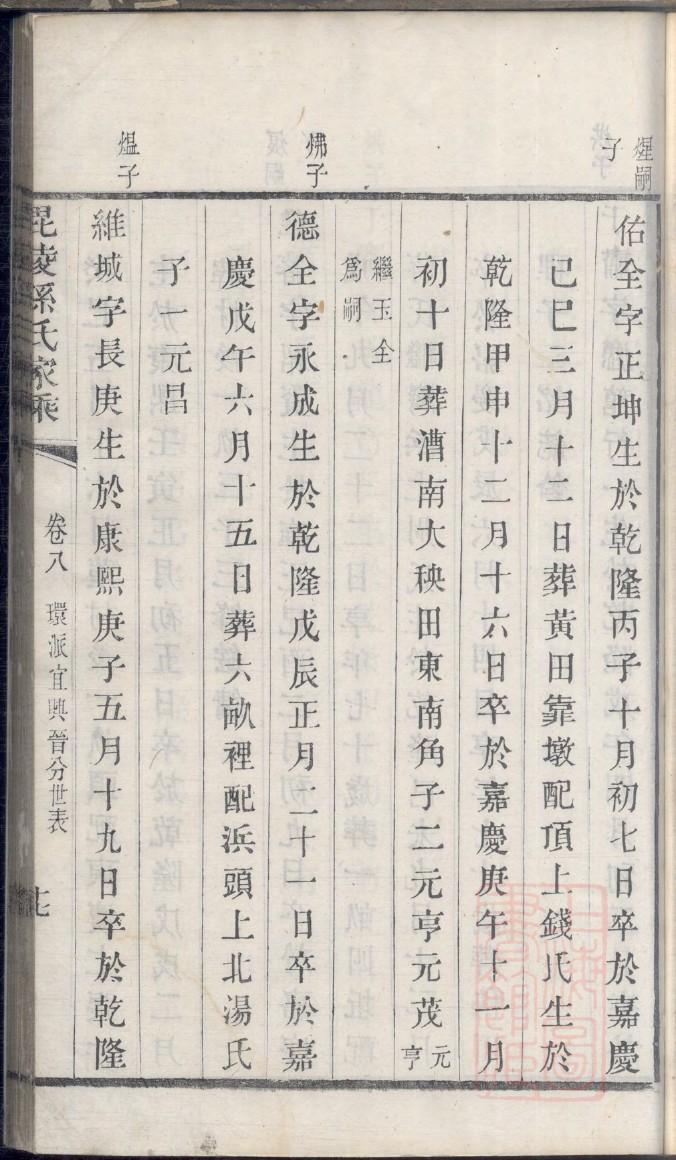 煋嗣
子
佑全字正坤生於乾隆丙子十月初七日卒於嘉慶
己巳三月十二日葬黃田靠墩配頂上錢氏生於
乾隆甲申十二月十六日卒於嘉慶庚午十一月
初十日葬漕南大秧田東南角子二元亨元茂元
亨
繼玉全
為嗣
炥子
德全字永成生於乾隆戊辰正月二十一日卒於嘉
慶戊午六月十五日葬六畝裡配浜頭上北湯氏
子一元昌
煴子
維城字長庚生於康熙庚子五月十九日卒於乾隆
毘陵孫氏家乘
卷八
環派宜興晉分世表